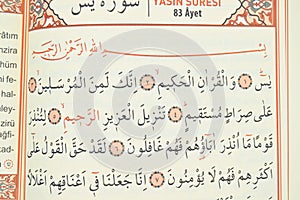 سورة يس
YASİN SURESİ
83 Âyet
بِسْمِ اللهِ الرَّحْمٰنِ الرَّحِيمِ
يٰسٓ ﴿١﴾ وَالْقُرْاٰنِ الْحَكِيمِ ﴿٢﴾ اِنَّكَ لَمِنَ الْمُرْسَلِينَ ﴿٣﴾
عَلٰى صِرَاطٍ مُسْتَقِيمٍ ﴿٤﴾ تَنْزِيلَ الْعَزِيزِ الرَّحِيمِ ﴿٥﴾ لِتُنْذِرَ
قَوْمًا مَٓا اُنْذِرَ اٰبَٓاؤُ۬هُمْ فَهُمْ غَافِلُونَ ﴿٦﴾ لَقَدْ حَقَّ الْقَوْلُ عَلٰٓى
اَكْثَرِهِمْ فَهُمْ لَا يُؤْمِنُونَ ﴿٧﴾ اِنَّا جَعَلْنَا فِٓي اَعْنَاقِهِمْ اَغْلَالًا